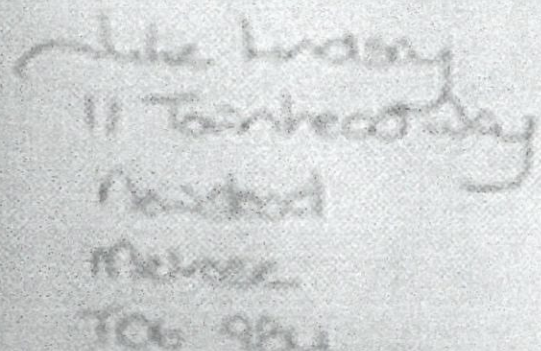 Luke Lindsay
11 Townhead Way
Newstead
Melrose
TD6 9BU